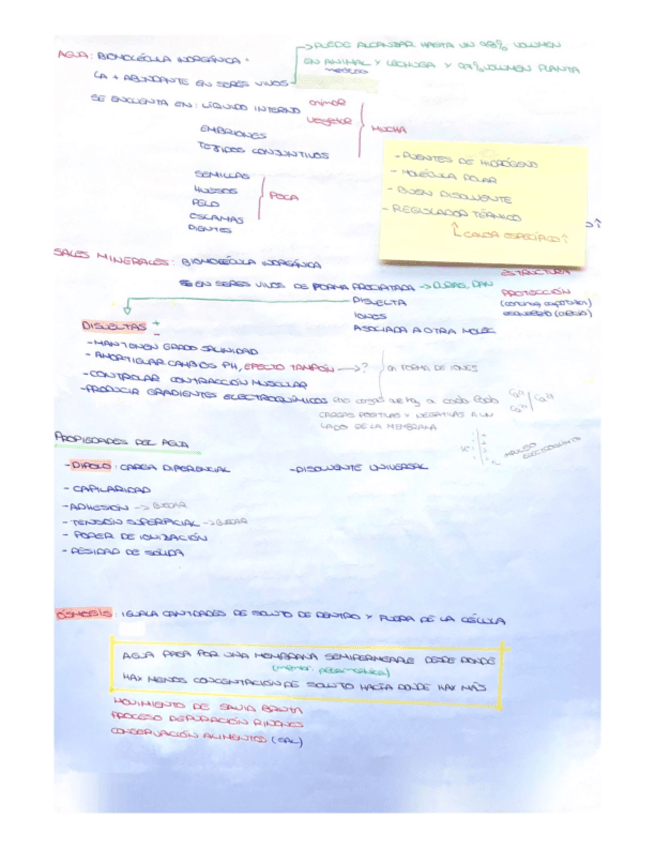 → PUEDE ALCANZAR HASTA UN 98% VOLUMEN
AGUA: BIOMOLÉCULA INORGÁNICA.
EN ANIMAL Y LECHUGA Y 97% VOLUMEN PLANTA
LA + ABUNDANTE EN SERES VIVOS
SE ENCUENTA EN: LÍQUIDO INTERNO animal
vegetal
MUCHA
EMBRIONES
TEJIDOS CONJUNTIVOS
SEMILLAS
HUESOS
PELO
POCA
ESCAMAS
DIENTES
- PUENTES DE HIDRÓGENO
- MOLÉCULA POLAR
- BUEN DISOLVENTE
- REGULADOR TÉRMICO
CALOR ESPECÍFICO ↑
SALES MINERALES: BIOMOLÉCULA INORGÁNICA
EN SERES VIVOS DE FORMA PRECIPITADA → DURAS, DAN
ESTRUCTURA
PROTECCIÓN
DISUELTA
IONES
ASOCIADA A OTRA MOLEC.
DISUELTAS + -
- MANTIENEN GRADO SALINIDAD
- AMORTIGUAR CAMBIOS PH, EFECTO TAMPÓN → ?
en FORMA DE IONES
- CONTROLAR CONTRACCIÓN MUSCULAR
- PRODUCIR GRADIENTES ELECTROQUÍMICOS
CARGAS POSITIVAS Y NEGATIVAS A UN
LADO DE LA MEMBRANA
PROPIEDADES DEL AGUA
- DIPOLO: CARGA DIFERENCIAL
- DISOLVENTE UNIVERSAL
- CAPILARIDAD
- ADHESIÓN → BUSCAR
- TENSIÓN SUPERFICIAL → BUSCAR
- PODER DE IONIZACIÓN
ÓSMOSIS: IGUALA CANTIDADES DE SOLUTO DE DENTRO Y FUERA DE LA CÉLULA
AGUA PASA POR UNA MEMBRANA SEMIPERMEABLE DESDE DONDE
HAY MENOS CONCENTACIÓN DE SOLUTO HACIA DONDE HAY MÁS
MOVIMIENTO DE SAVIA BRUTA
PROCESO DEPURACIÓN RIÑONES
CONSERVACIÓN ALIMENTOS (SAL)